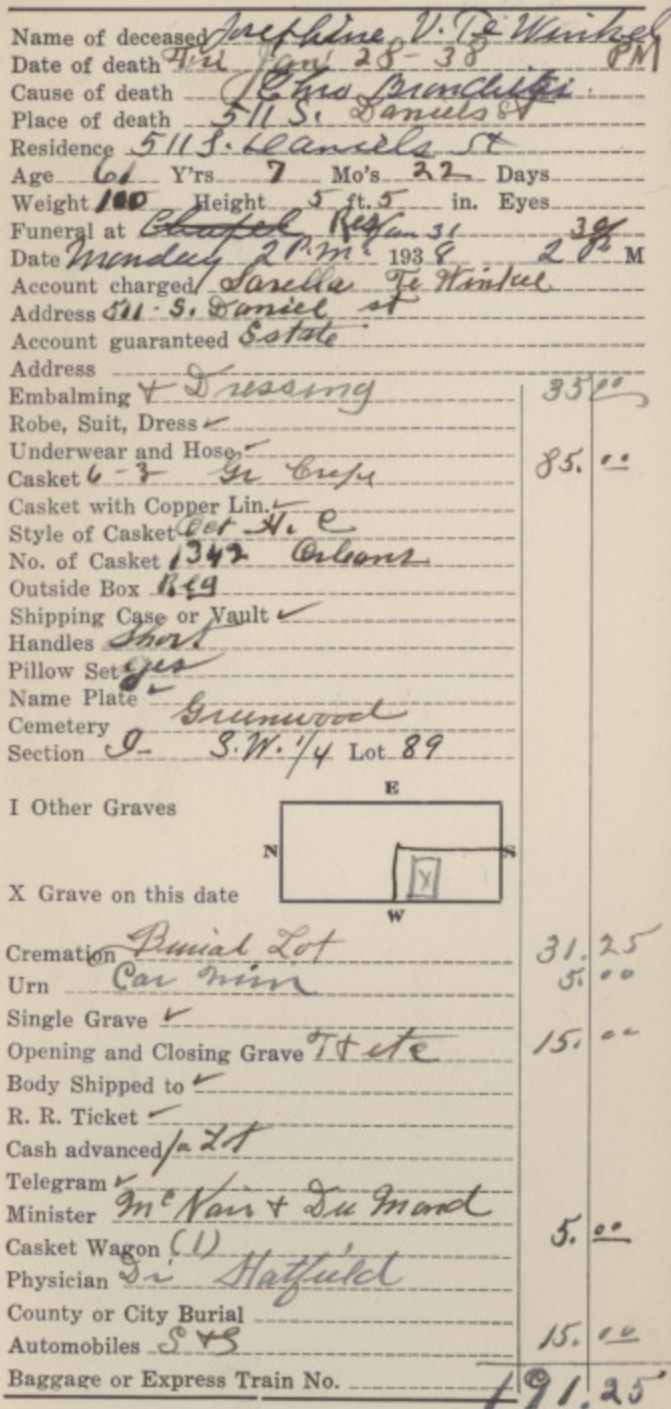 Name of deceased Josephine V. Te Winkel
Date of death Fri Jan 28-38 PM
Cause of death Chro Bronchitis.
Place of death 511 S. Daniels St
Residence 511 S. Daniels St
Age 61 Y'rs 7 Mo's 22 Days
Weight 100 Height 5 ft. 5 in. Eyes
Funeral at Chapel Res Jan 31
Date Monday 2 P.M. 1938 2 30 P M
Account charged Sarella Te Winkel
Address 511 - S. Daniel st
Account guaranteed Estate
Address
Embalming + Dressing 35 00
Robe, Suit, Dress ✓
Underwear and Hose ✓
Casket 6-3 Gr Crepe 85. 00
Casket with Copper Lin. ✓
Style of Casket Oct H. C
No. of Casket 1342 Orleans
Outside Box Reg
Shipping Case or Vault ✓
Handles Short
Pillow Set yes
Name Plate ✓
Cemetery Greenwood
Section I- S.W. 1/4 Lot 89
E
I Other Graves
N S
X
X Grave on this date
W
Cremation Burial Lot 31.25
Urn Car 5. 00
Single Grave ✓
Opening and Closing Grave T + etc 15. 00
Body Shipped to ✓
R. R. Ticket ✓
Cash advanced Lot
Telegram ✓
Minister Mc Nair + Du Mond
Casket Wagon (1) 5. 00
Physician Dr Hatfield
County or City Burial
Automobiles S + S 15. 00
Baggage or Express Train No. 191.25